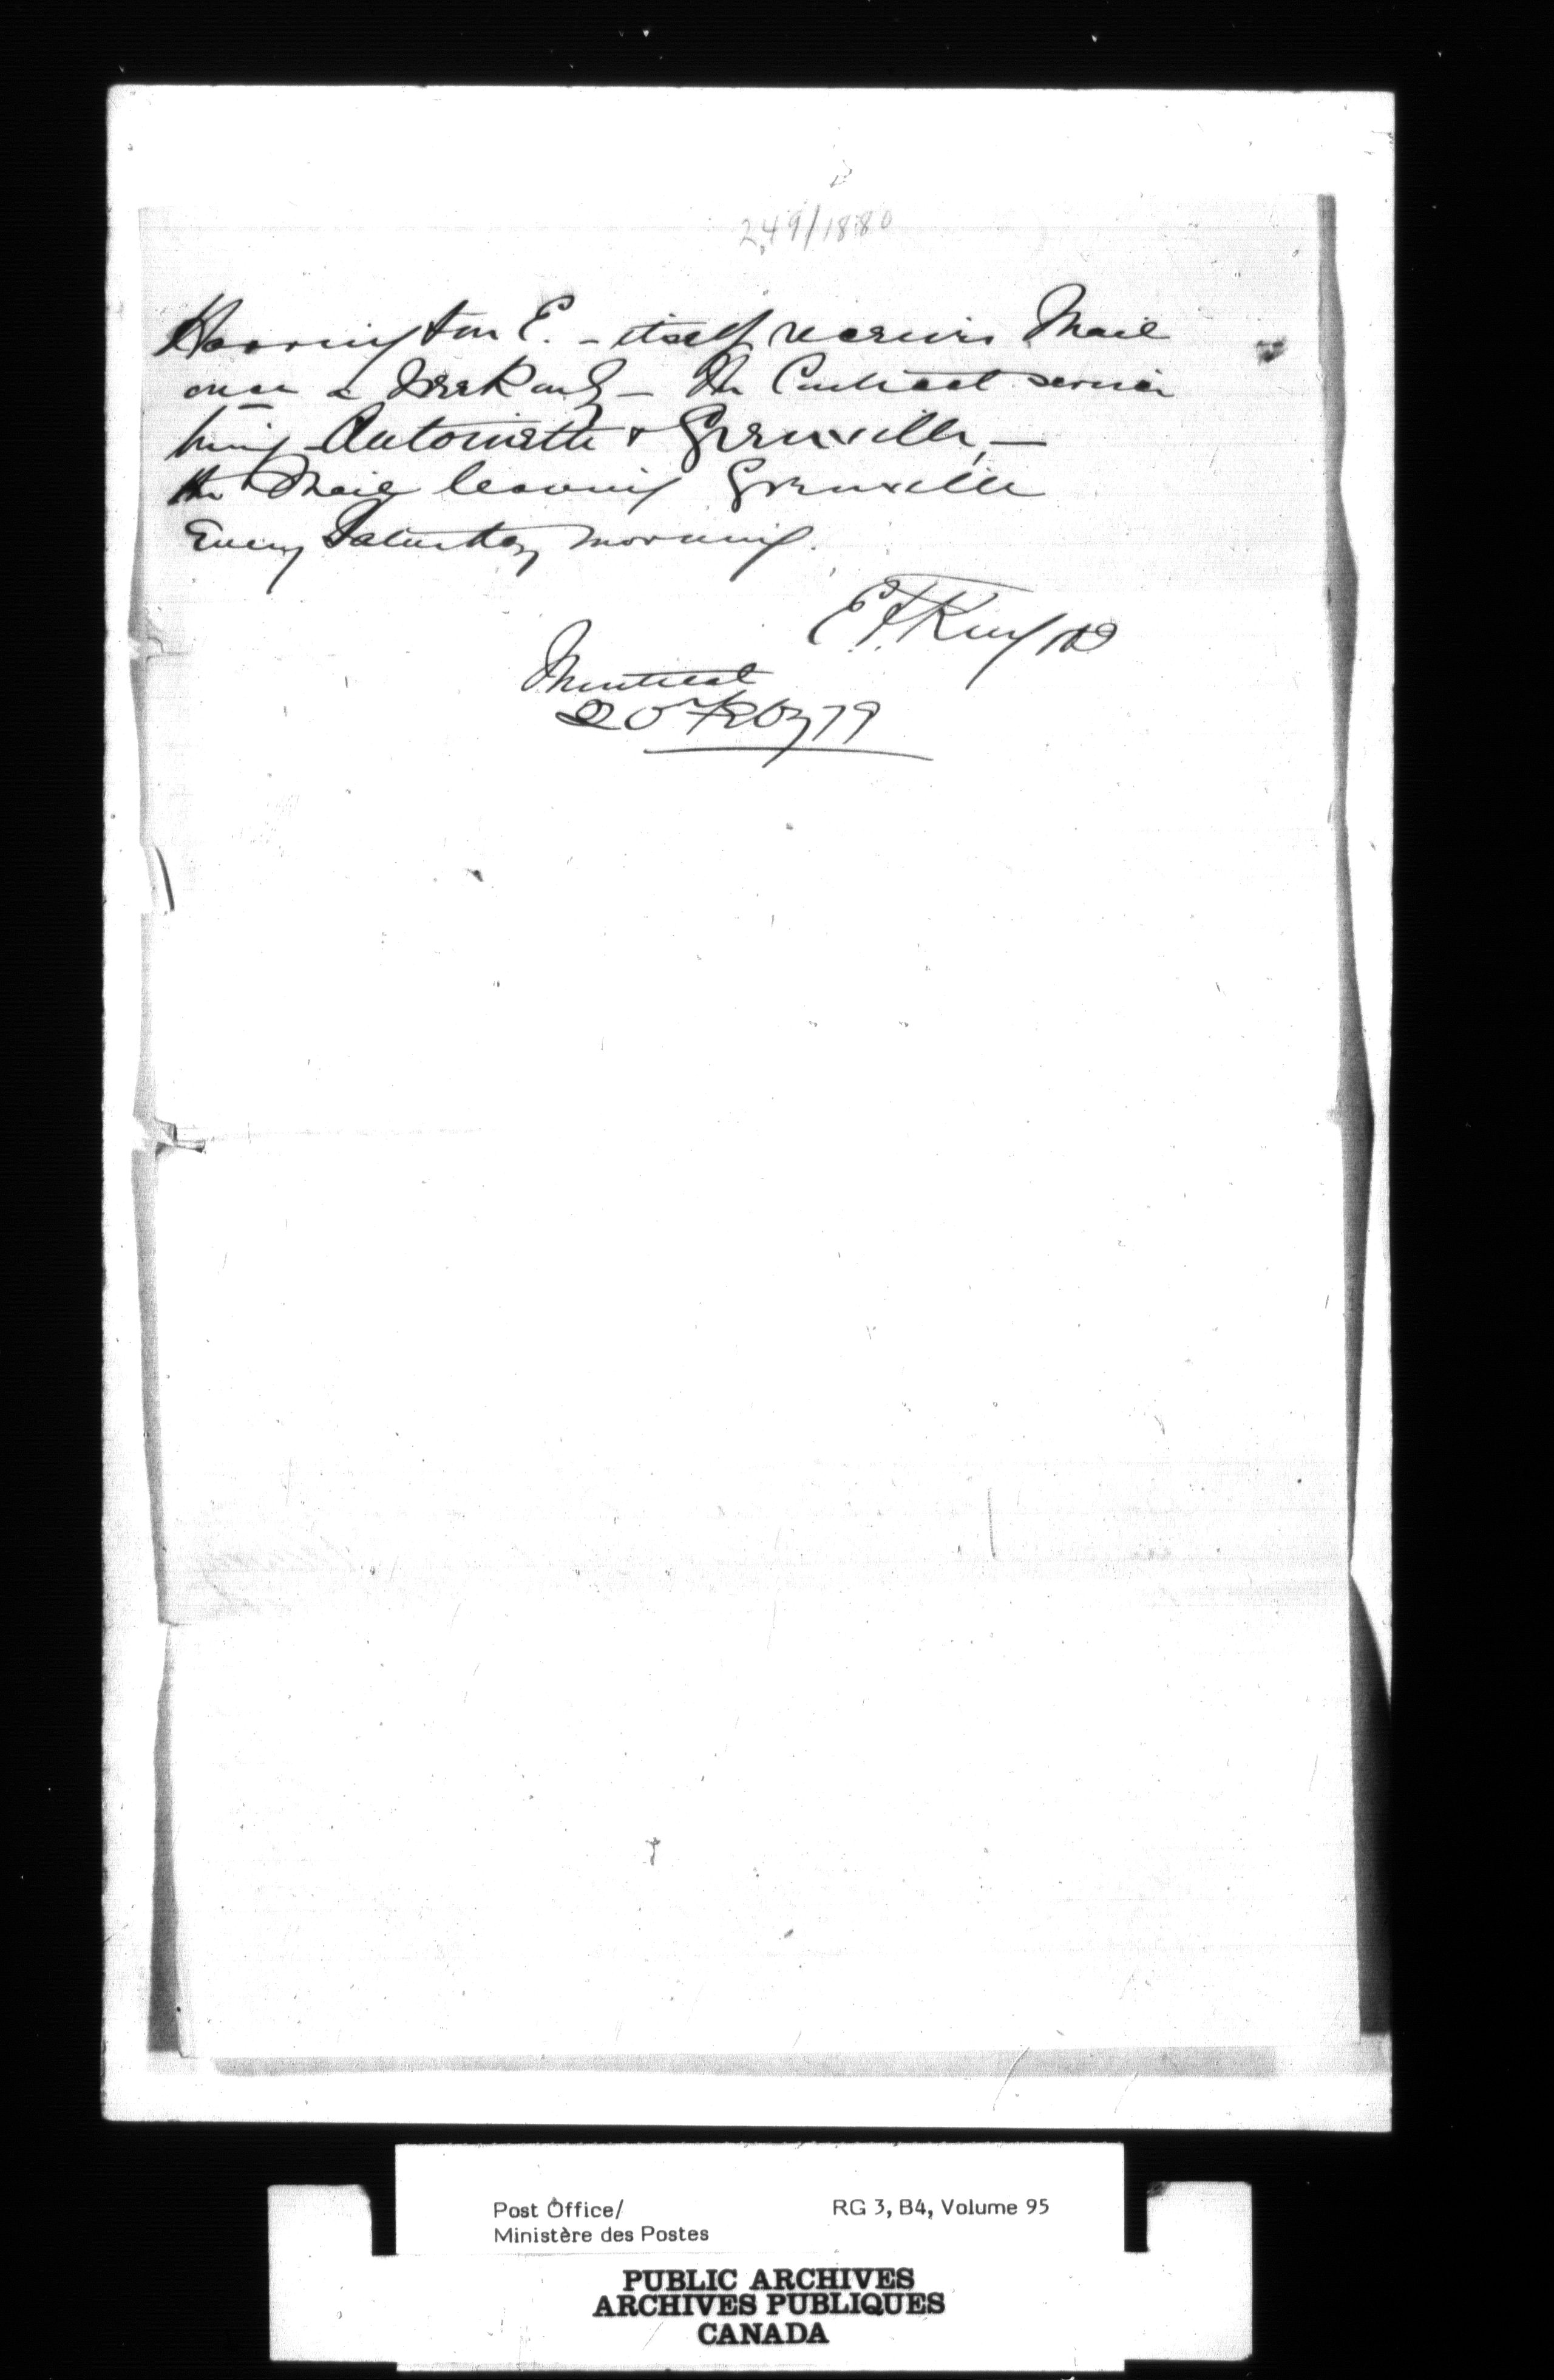 249/1880
Harrington E. - itself receives Mail
once a Week only - the Contract service
being Antoinette & Grenville, -
the Mail leaving Grenville
Every Saturday morning.
E.F. King
Montreal
20 Feby 79
Post Office/
Ministère des Postes
RG 3, B4, Volume 95
PUBLIC ARCHIVES
ARCHIVES PUBLIQUES
CANADA